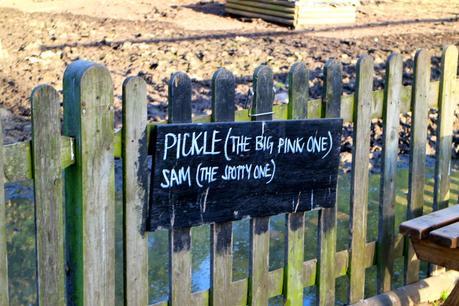 PICKLE (THE BIG PINK ONE)
SAM (THE SPOTTY ONE)